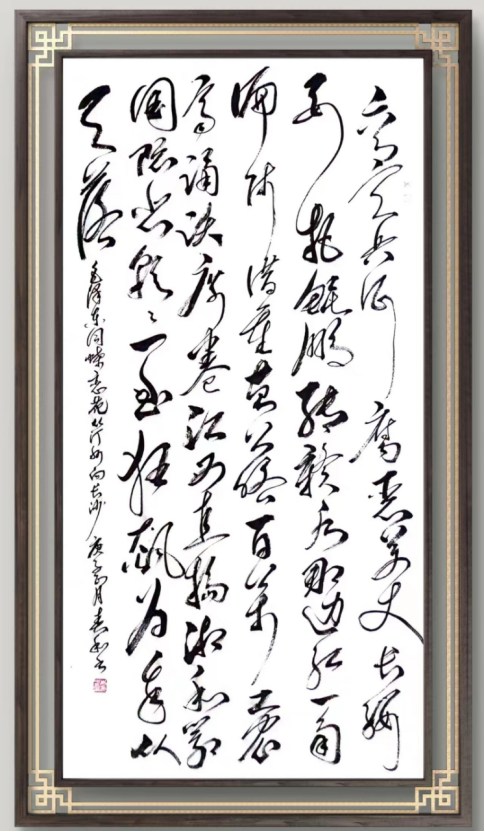 六月天兵征腐恶萬丈长缨
要把鲲鹏缚赣水那边红一角
偏师借重黄公略百萬工农
齐踊跃席卷江西直捣湘和鄂
国际悲歌々一曲狂飙为我从
天落
毛泽东同蝶恋花从汀州向长沙 庚子月书